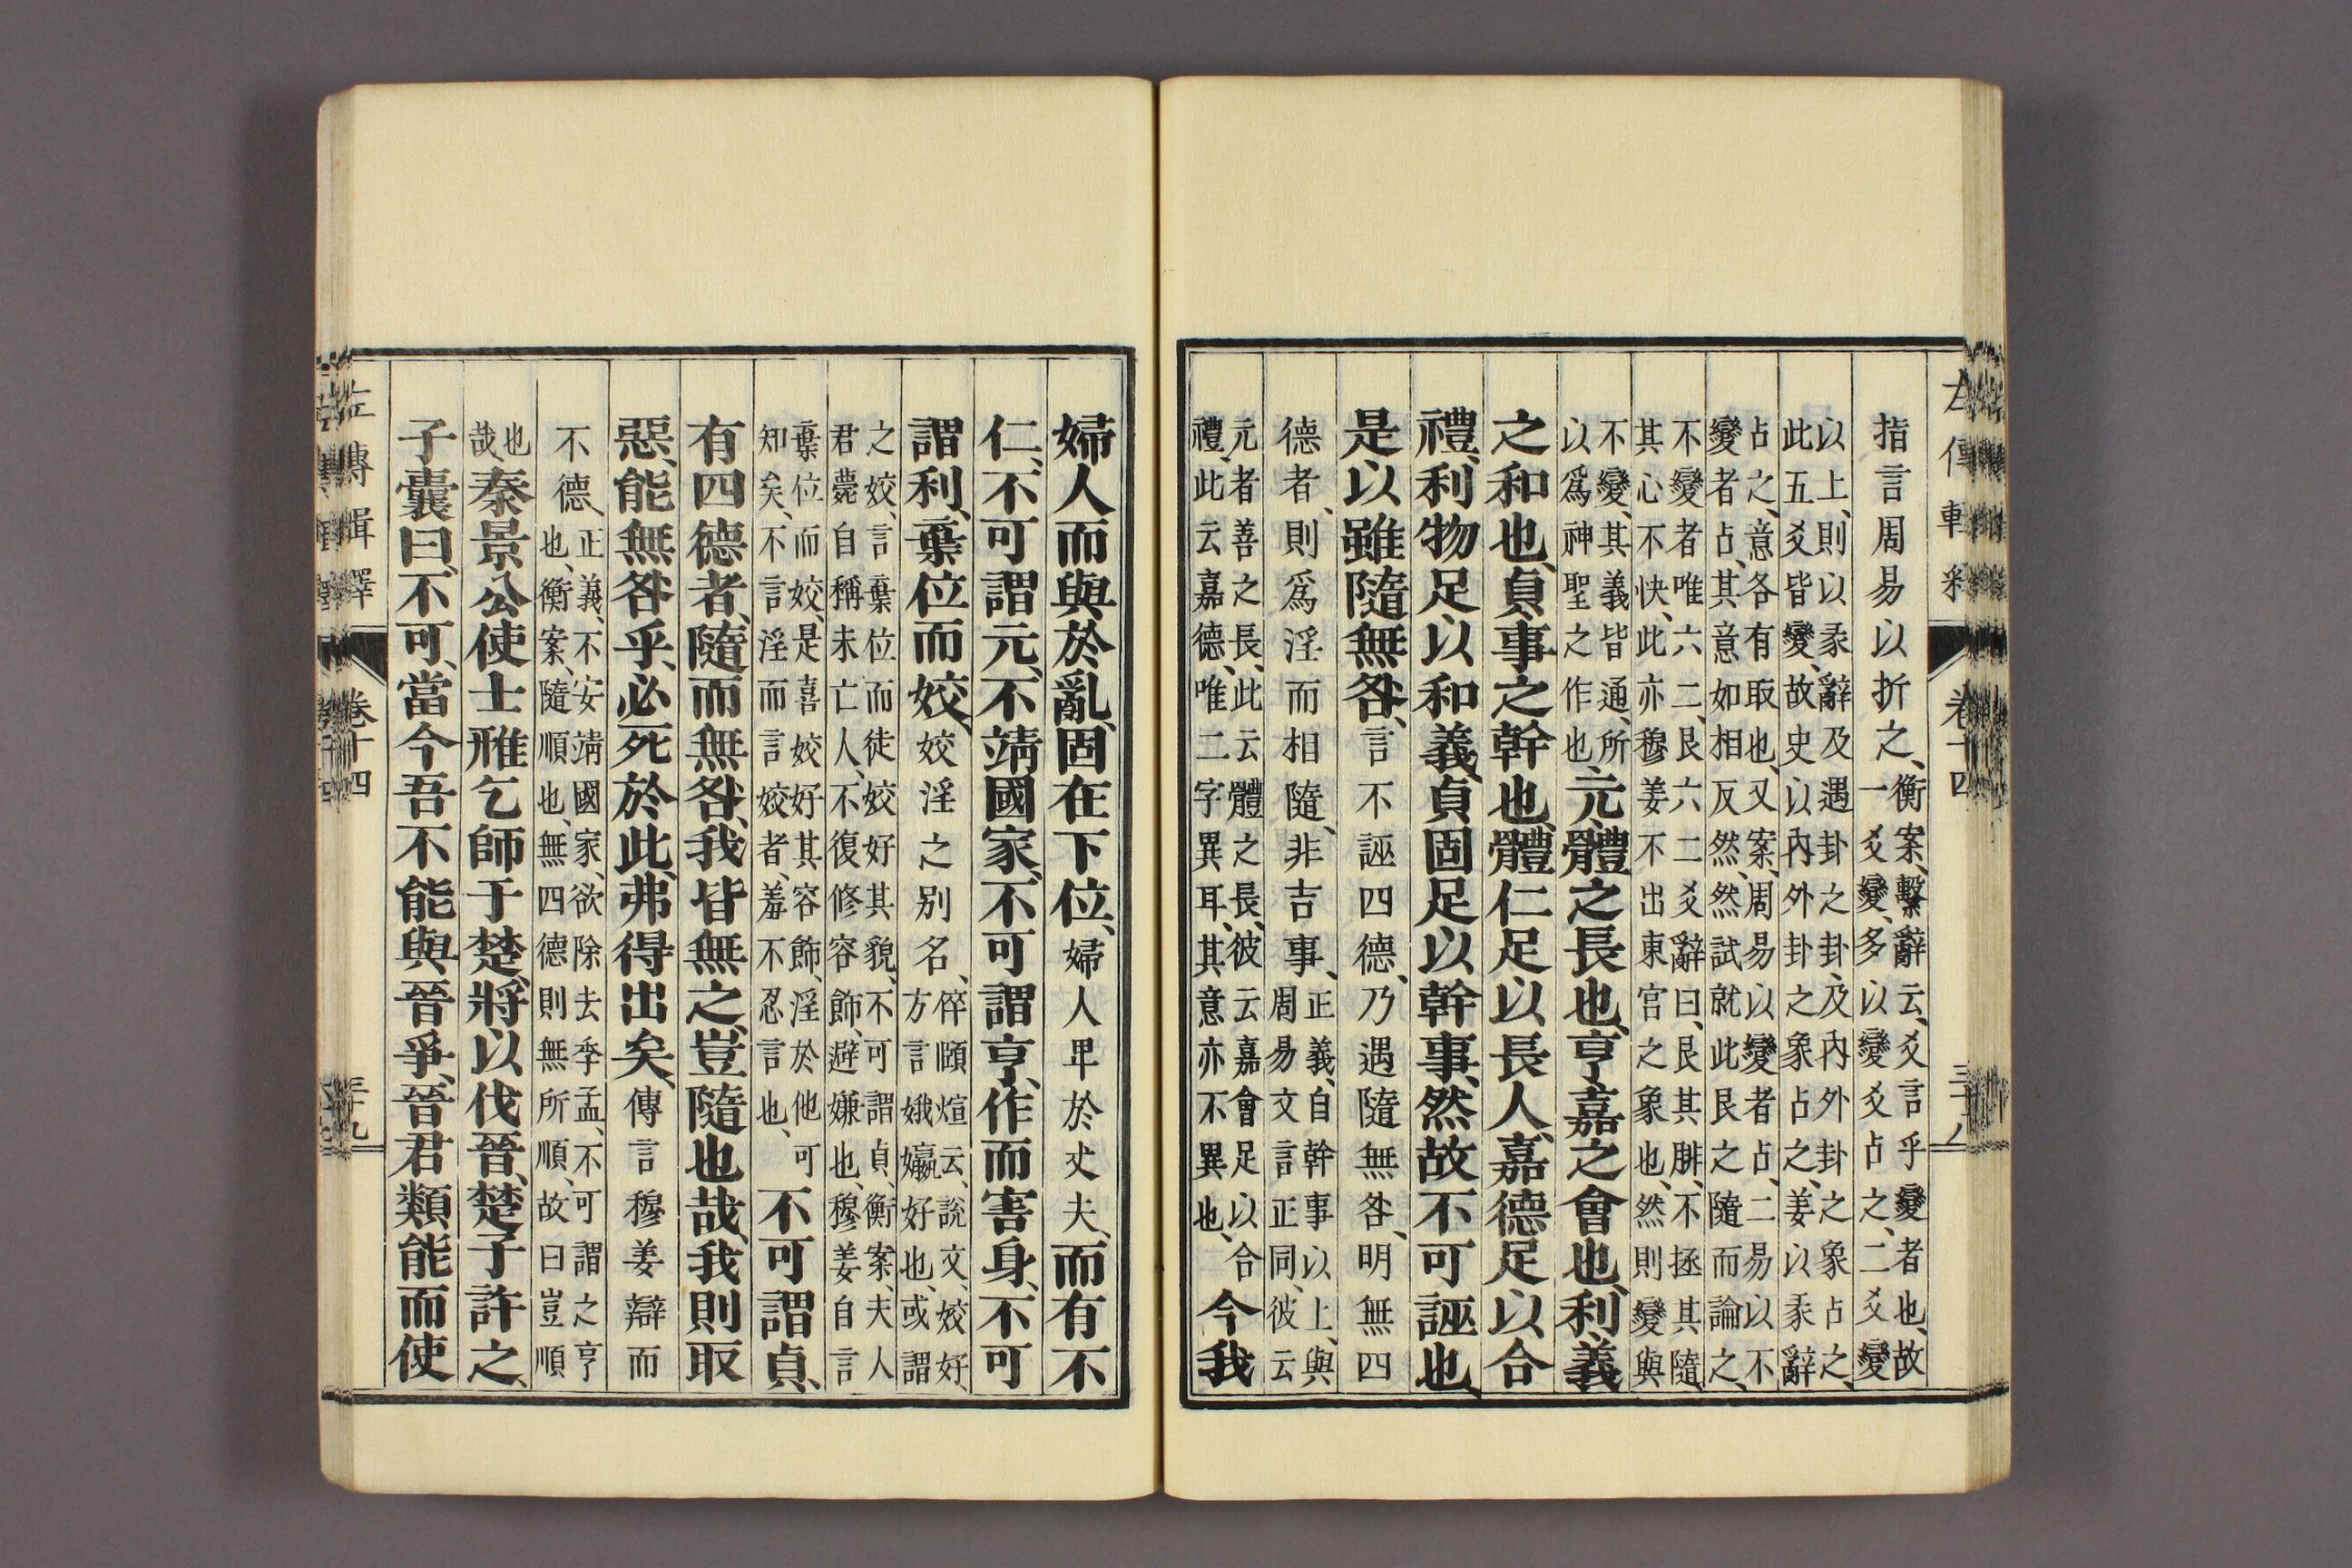 指言周易以折之、
衡案、繫辭云、爻言乎變者也、故
一爻變、多以變爻占之、二爻變
以上、則以彖辭及遇卦之卦、及內外卦之象占之、
此五爻皆變、故史以內外卦之象占之、姜以彖辭
占之、意各有取也、又案、周易以變者占、二易以不
變者占、其意如相反然、然試就此艮之隨而論之、
不變者唯六二、艮六二爻辭曰、艮其腓、不拯其隨、
其心不快、此亦穆姜不出東宮之象也、然則變與
不變、其義皆通、所
以爲神聖之作也、
元、體之長也、亨、嘉之會也、利、義
之和也、貞、事之幹也、體仁足以長人、嘉德足以合
禮、利物足以和義、貞固足以幹事、然故不可誣也、
是以雖隨無咎、言不誣四德、乃遇隨無咎、明無四
德者、則爲淫而相隨、非吉事、
正義、自幹事以上、與
周易文言正同、彼云
元者善之長、此云體之長、彼云嘉會足以合
禮、此云嘉德、唯二字異耳、其意亦不異也、
今我
婦人而與於亂、固在下位、婦人卑於丈夫、而有不
仁、不可謂元、不靖國家、不可謂亨、作而害身、不可
謂利、棄位而姣、姣淫之別名、
頤煊云、說文、姣好、
方言娥㜲好也、或謂
之姣、言棄位而徒姣好其貌、不可謂貞、衡案、夫人
君薨自稱未亡人、不復修容飾、避嫌也、穆姜自言
棄位而姣、是喜姣好其容飾、淫於他可
知矣、不言淫而言姣者、羞不忍言也、
不可謂貞、
有四德者、隨而無咎、我皆無之、豈隨也哉、我則取
惡、能無咎乎、必死於此、弗得出矣、傳言穆姜辯而
不德、
正義、不安靖國家、欲除去季孟、不可謂之亨
也、衡案、隨順也、無四德則無所順、故曰豈順
也
哉
秦景公使士雃乞師于楚、將以伐晉、楚子許之、
子囊曰、不可、當今吾不能與晉爭、晉君類能而使
左傳輯釋 卷十四 三十九